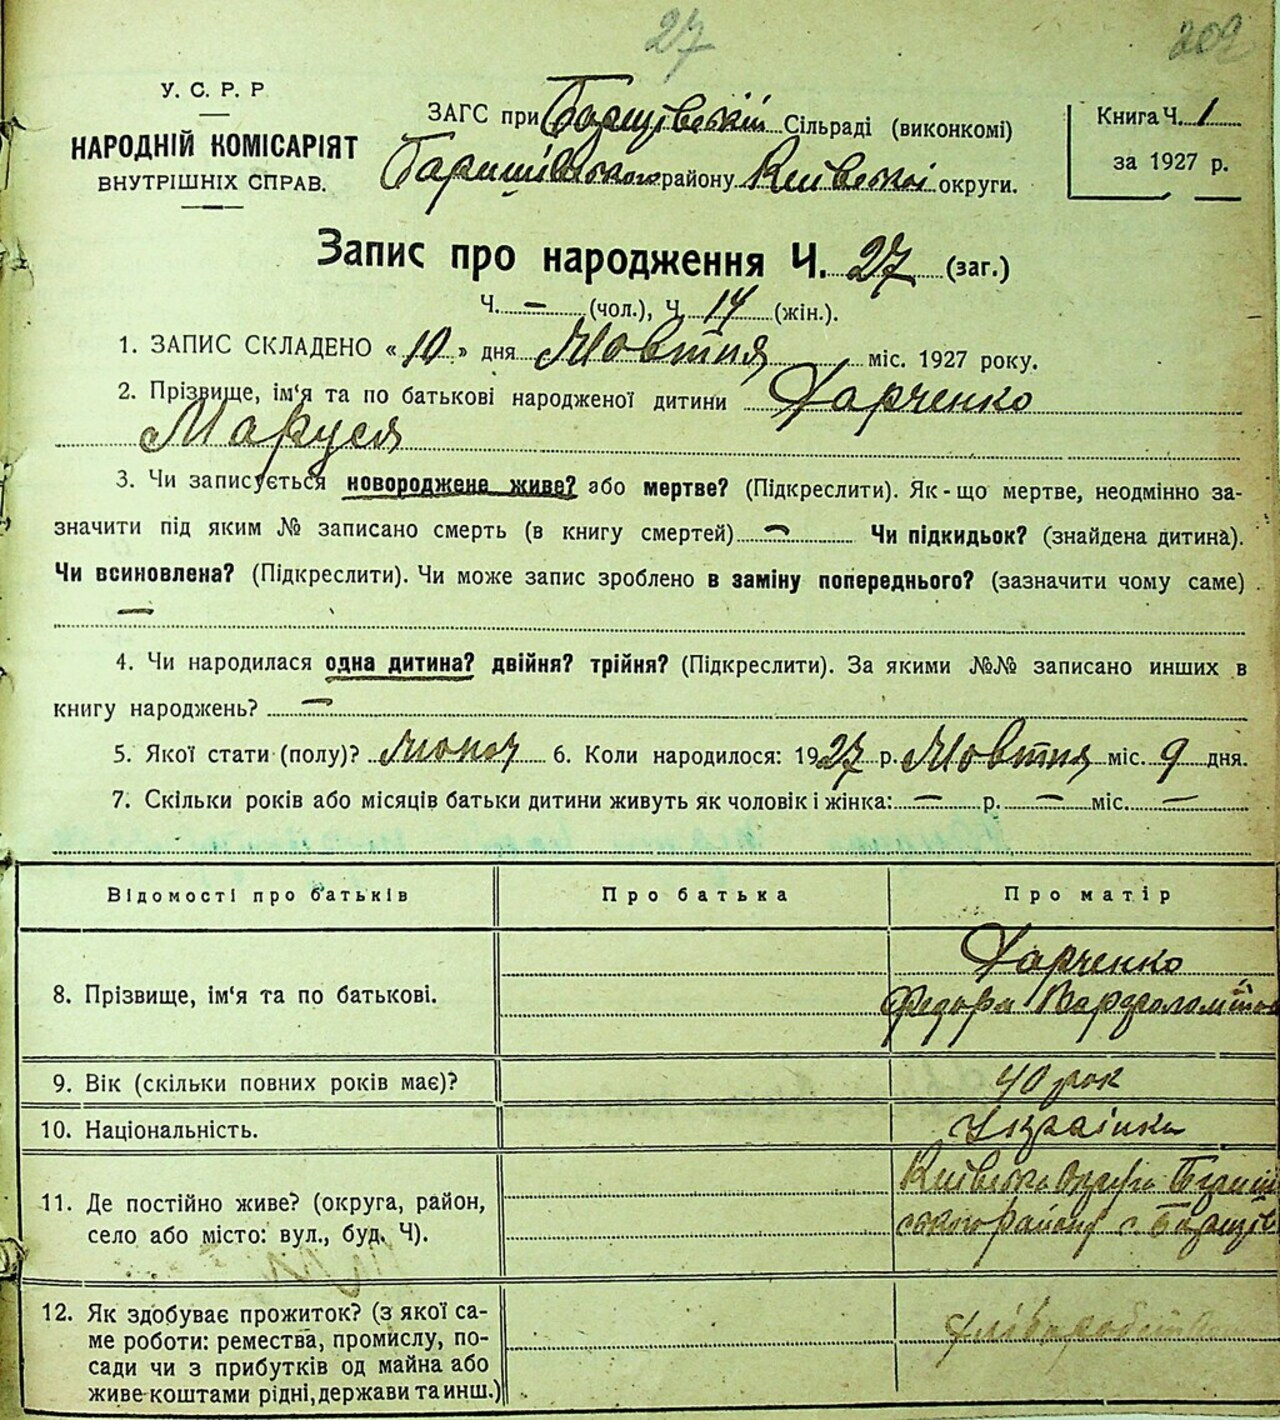 27 202
У. С. Р. Р
НАРОДНІЙ КОМІСАРІЯТ
ВНУТРІШНІХ СПРАВ.
ЗАГС при Борщівській Сільраді (виконкомі)
Баришівського району Київської округи.
Книга Ч. 1
за 1927 р.
Запис про народження Ч. 27 (заг.)
Ч. — (чол.), Ч. 14 (жін.).
1. ЗАПИС СКЛАДЕНО « 10 » дня Жовтня міс. 1927 року.
2. Прізвище, ім‘я та по батькові народженої дитини Харченко
Маруся
3. Чи записується новороджене живе? або мертве? (Підкреслити). Як-що мертве, неодмінно за-
значити під яким № записано смерть (в книгу смертей) — Чи підкидьок? (знайдена дитина).
Чи всиновлена? (Підкреслити). Чи може запис зроблено в заміну попереднього? (зазначити чому саме)
—
4. Чи народилася одна дитина? двійня? трійня? (Підкреслити). За якими №№ записано инших в
книгу народжень? —
5. Якої стати (полу)? жіноч 6. Коли народилося: 1927 р. Жовтня міс. 9 дня.
7. Скільки років або місяців батьки дитини живуть як чоловік і жінка: — р. — міс. —
Відомості про батьків Про батька Про матір
8. Прізвище, ім‘я та по батькові.
Харченко
Федора
9. Вік (скільки повних років має)? 40 рок
10. Національність. Українка
11. Де постійно живе? (округа, район,
село або місто: вул., буд. Ч).
Київська Округа
району с.
12. Як здобуває прожиток? (з якої са-
ме роботи: ремества, промислу, по-
сади чи з прибутків од майна або
живе коштами рідні, держави та инш.)